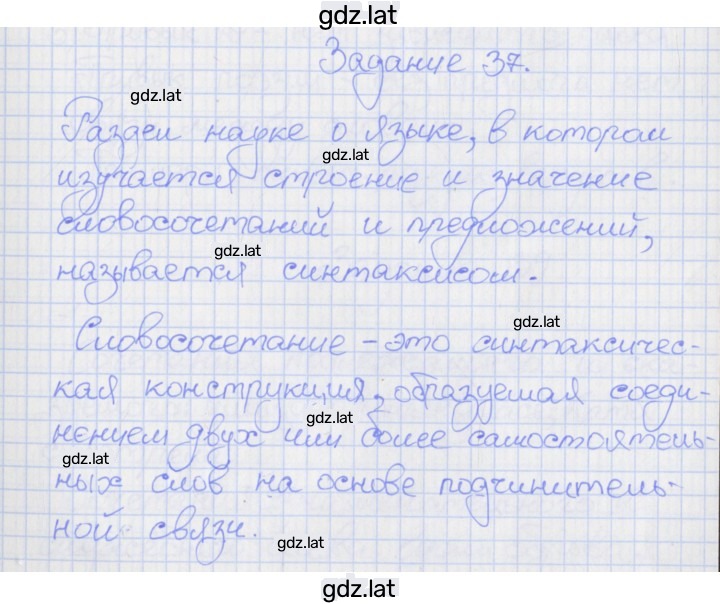 gdz.lat
Задание 37.
gdz.lat
Раздел науке о языке, в котором
gdz.lat
изучается строение и значение
словосочетаний и предложений,
gdz.lat
называется синтаксисом.
gdz.lat
Словосочетание – это синтаксичес-
кая конструкция, образуемая соеди-
gdz.lat
нением двух или более самостоятель-
gdz.lat
ных слов на основе подчинитель-
ной связи.
gdz.lat
gdz.lat